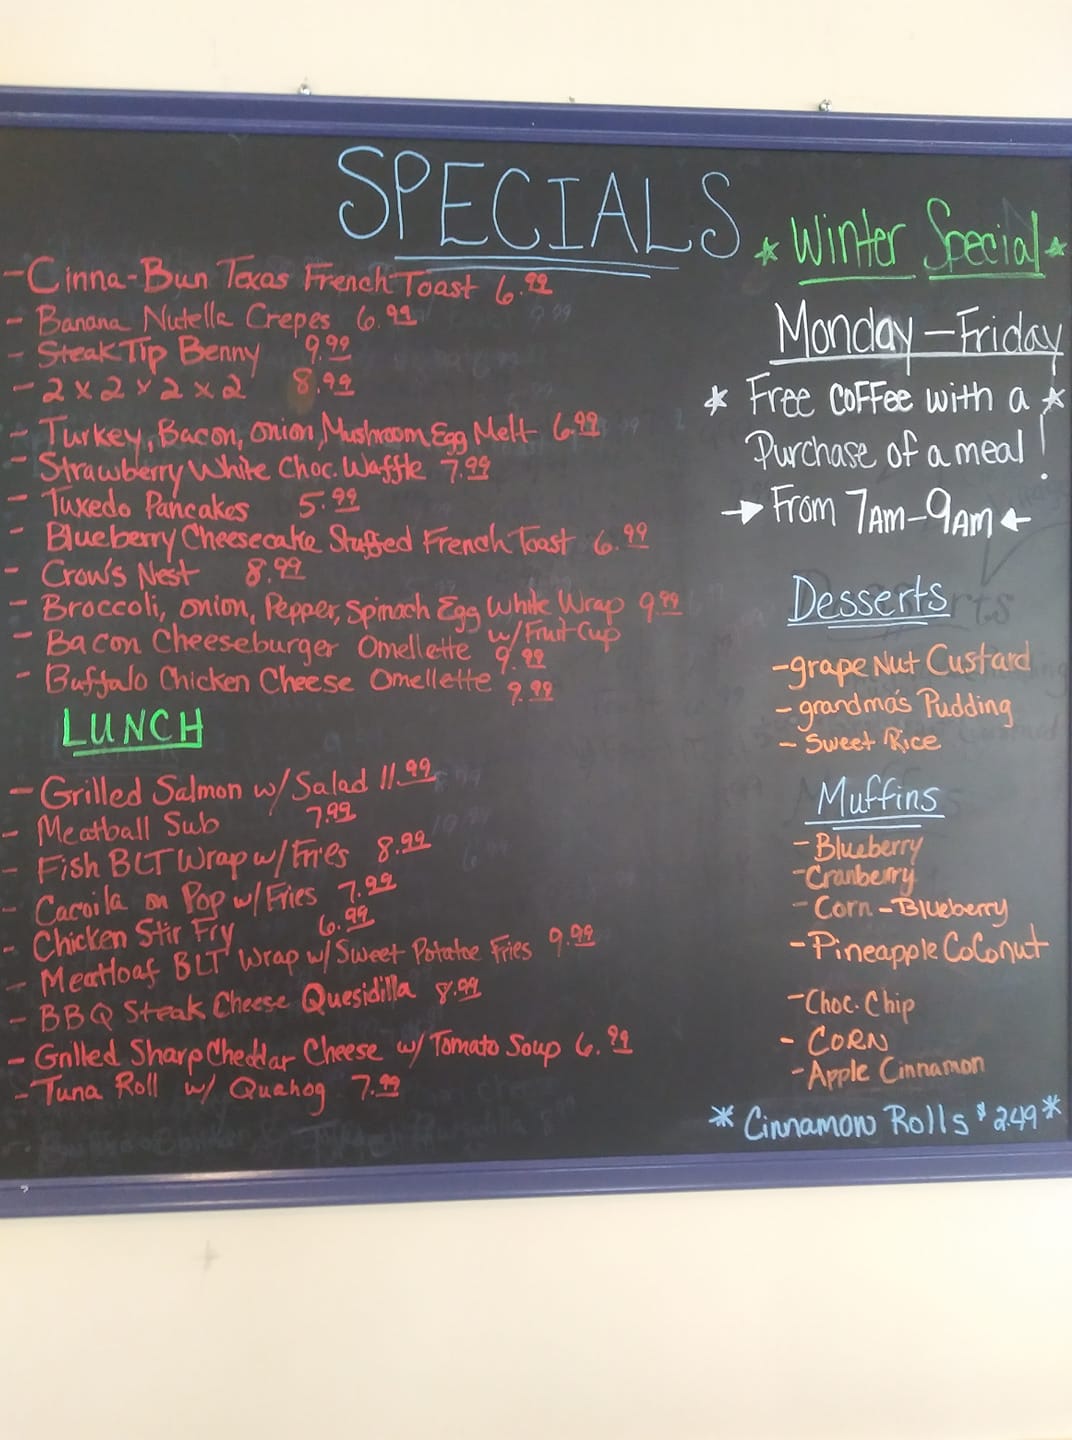 SPECIALS
- Cinna-Bun Texas French Toast 6.99
- Banana Nutella Crepes 6.99
- Steak Tip Benny 9.99
- 2 x 2 x 2 x 2 8.99
- Turkey, Bacon, Onion, Mushroom Egg Melt 6.99
- Strawberry White Choc. Waffle 7.99
- Tuxedo Pancakes 5.99
- Blueberry Cheesecake Stuffed French Toast 6.99
- Crow's Nest 8.99
- Broccoli, Onion, Pepper, Spinach Egg White Wrap 9.99
w/ Fruit Cup
- Bacon Cheeseburger Omellette 9.99
- Buffalo Chicken Cheese Omellette 9.99
LUNCH
- Grilled Salmon w/ Salad 11.99
- Meatball Sub 7.99
- Fish BLT Wrap w/ Fries 8.99
- Cacoila on Pop w/ Fries 7.99
- Chicken Stir Fry 6.99
- Meatloaf BLT Wrap w/ Sweet Potatoe Fries 9.99
- BBQ Steak Cheese Quesidilla 8.99
- Grilled Sharp Cheddar Cheese w/ Tomato Soup 6.99
- Tuna Roll w/ Quahog 7.99
* Winter Special *
Monday - Friday
* Free Coffee with a *
Purchase of a meal!
→ From 7AM-9AM ←
Desserts
- grape Nut Custard
- grandma's Pudding
- Sweet Rice
Muffins
- Blueberry
- Cranberry
- Corn - Blueberry
- Pineapple CoConut
- Choc. Chip
- CORN
- Apple Cinnamon
* Cinnamon Rolls $2.49 *